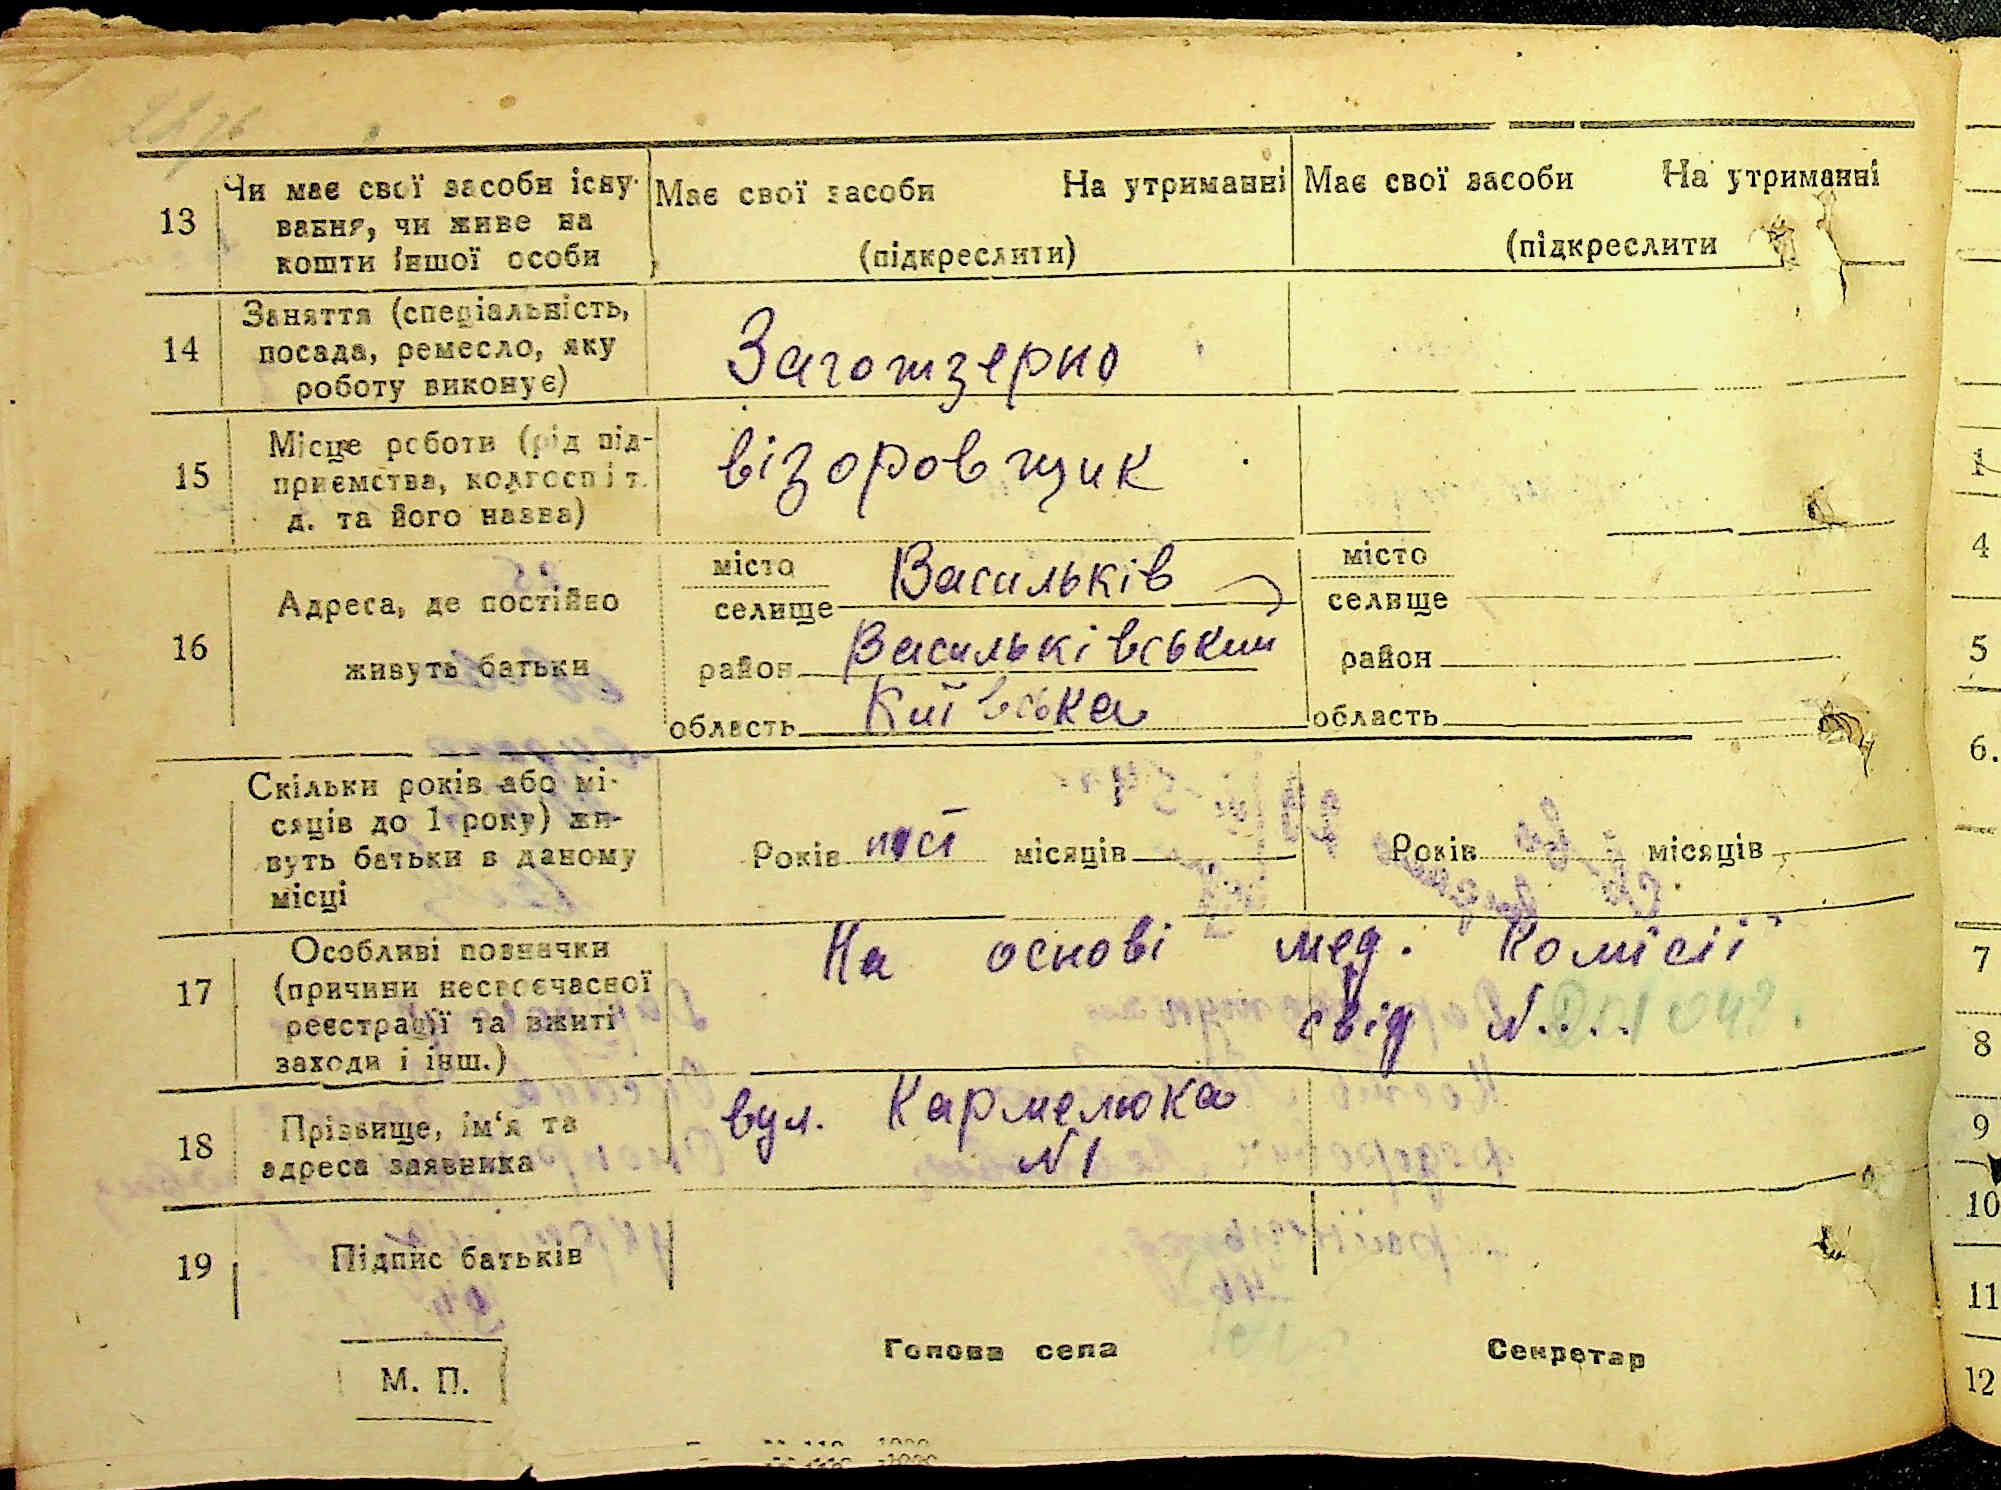 13 Чи має свої засоби існу-
вання, чи живе на
кошти іншої особи
Має свої засоби На утриманні
(підкреслити)
Має свої засоби На утриманні
(підкреслити
14 Заняття (спеціальність,
посада, ремесло, яку
роботу виконує)
Заготзерно
15 Місце роботи (рід під-
приємства, колгосп і т.
д. та його назва)
візоровщик
16 Адреса, де постійно
живуть батьки
місто
селище Васильків
район Васильківський
область Київська
місто
селище
район
область
Скільки років або мі-
сяців до 1 року) жи-
вуть батьки в даному
місці
Років пост місяців
Років місяців
17 Особливі позначки
(причини несвоєчасної
реєстрації та вжиті
заходи і інш.)
На основі мед. Комісії
свід №....
18 Прізвище, ім'я та
адреса заявника
вул. Кармелюка
№1
19 Підпис батьків
М. П.
Голова села Секретар
4
5
6.
7
8
9
10
11
12